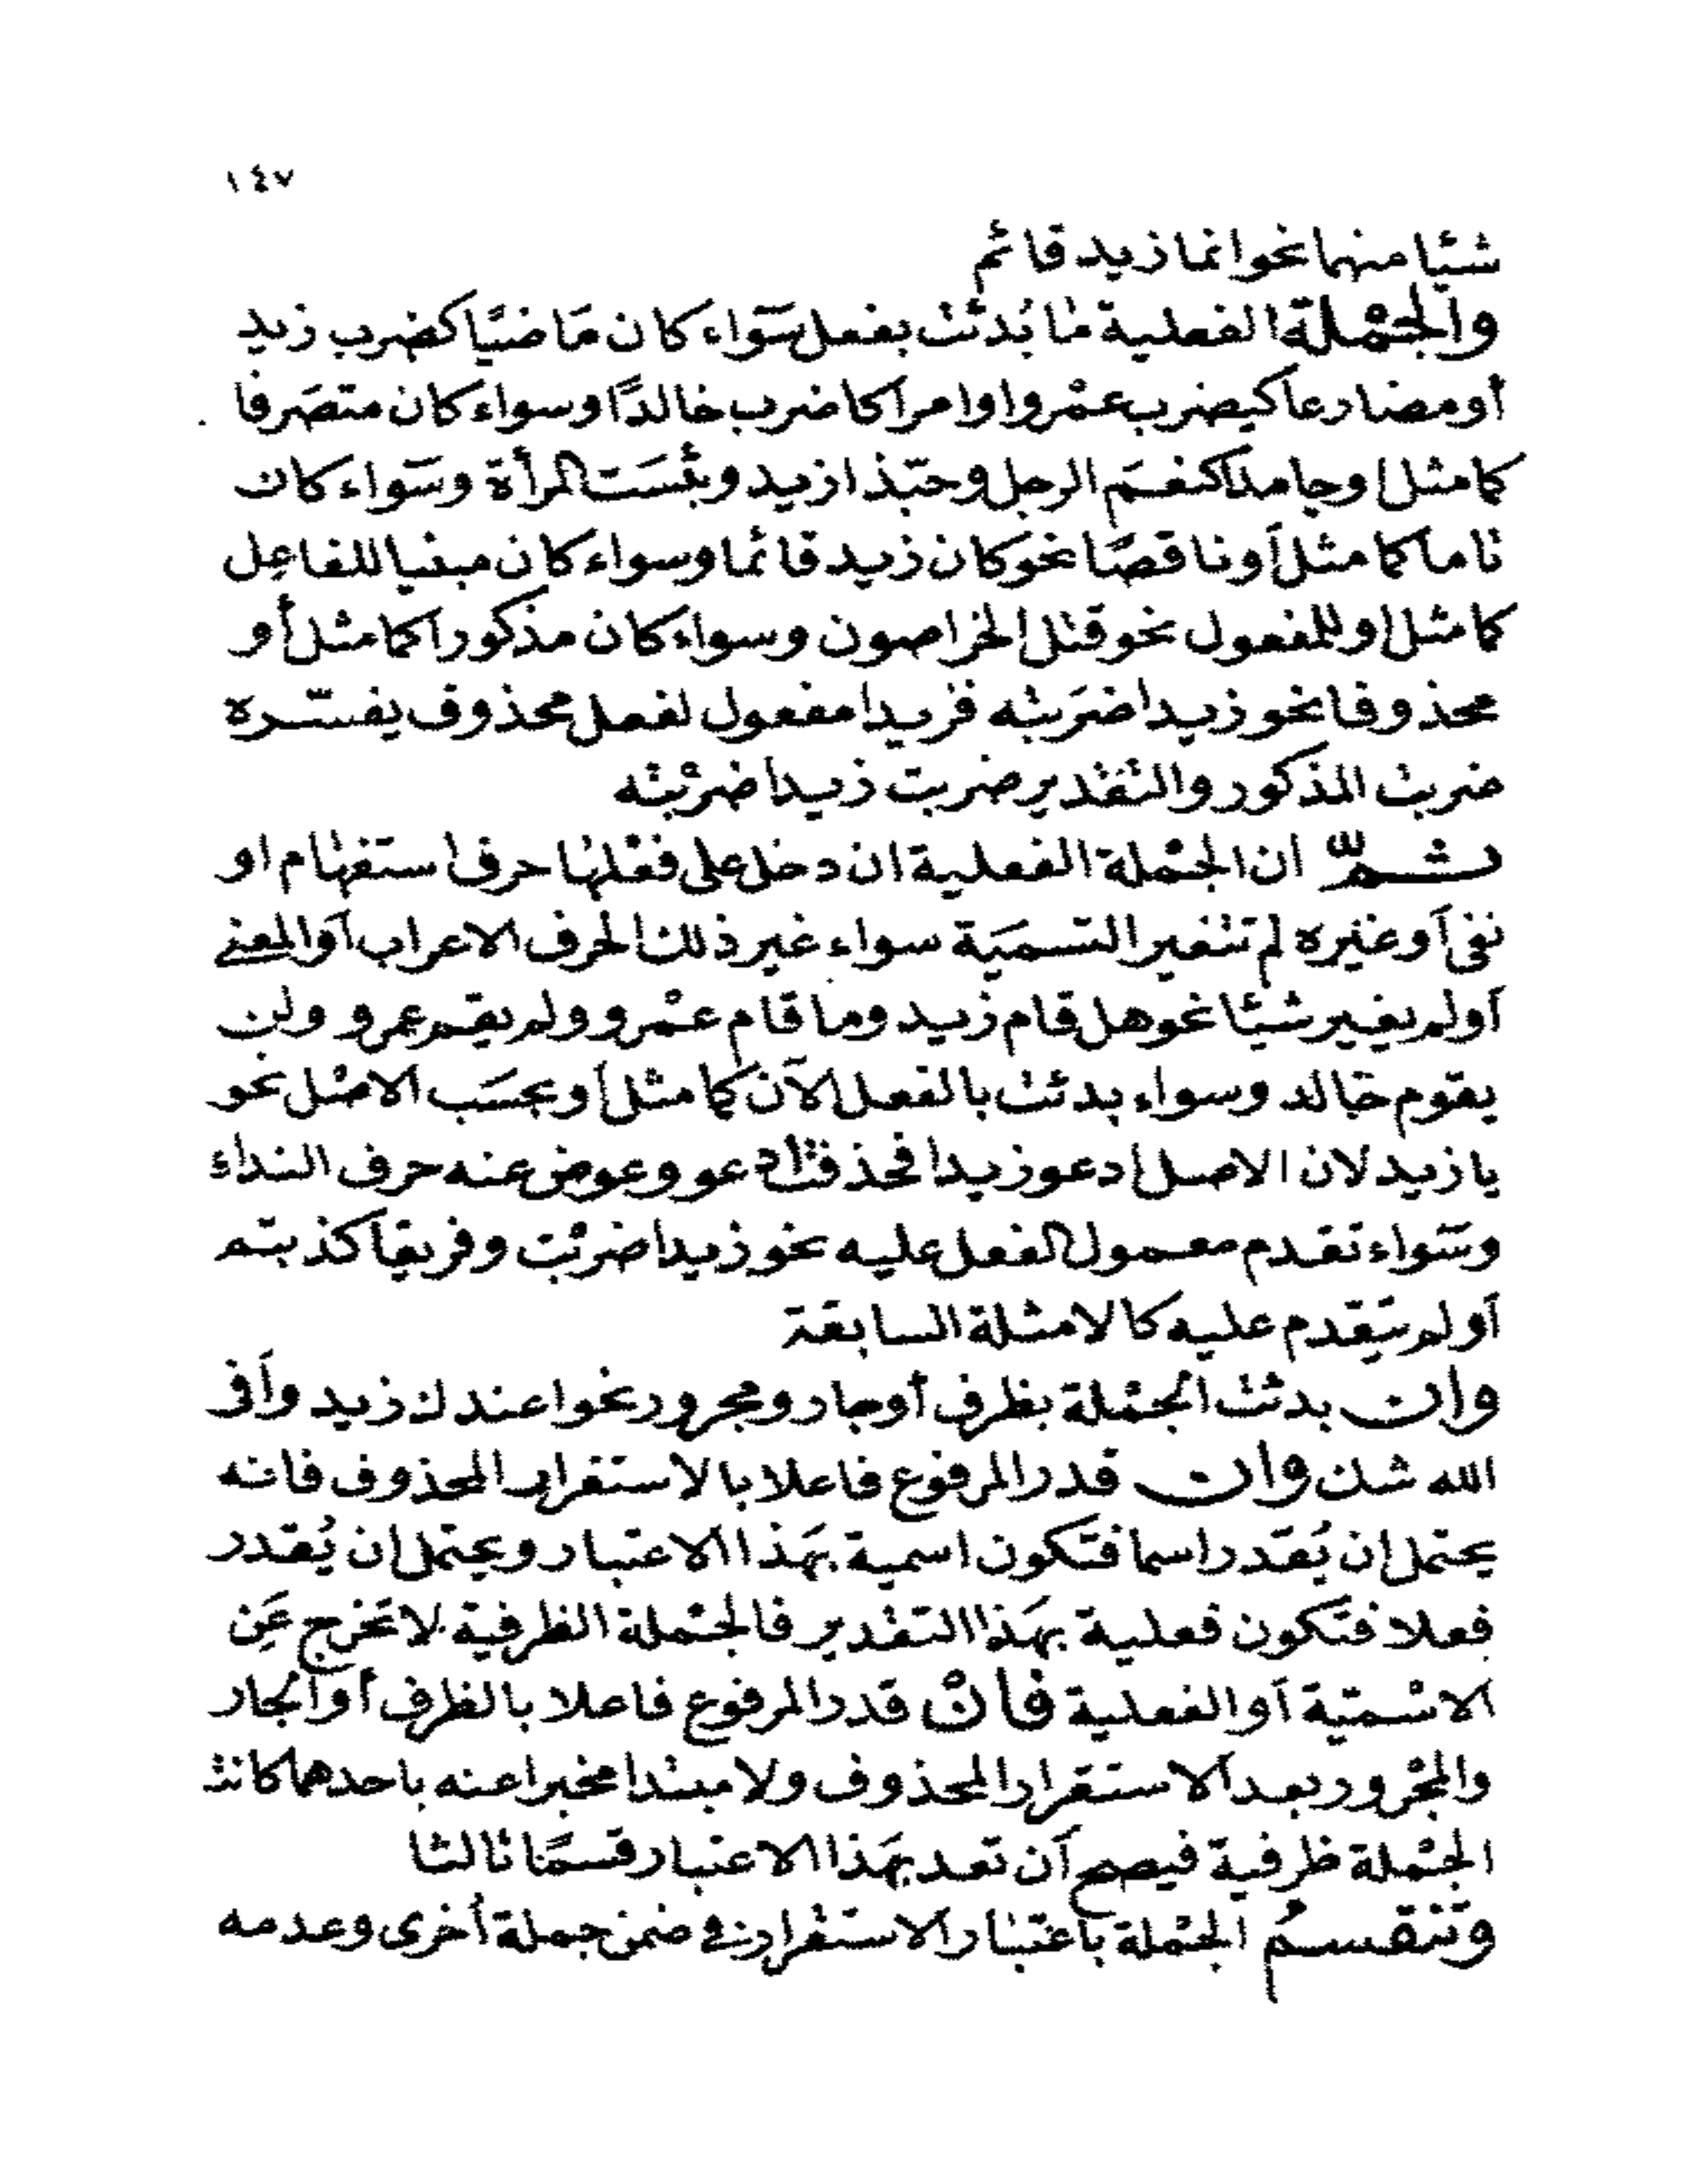 ١٤٧
شيئا منهما نحو انما زيد قائم
والجمْلة الفعلية مٰا بُدئت بفعل سَوَاء كان مَاضيًا كضرب زيد
أو مضارعا كيضرب عمْروا او امرا كاضرب خالدًا وسواء كان متصَرفا
كما مثل او جامدا كنعمَ الرجل وحبّذا زيد وبئسَت المرأة وسَواء كان
تاما كما مثل أو ناقصًا نحو كان زيد قائما وسواء كان مبنيا للفاعِل
كما مثل او للمفعول نحو قتل الخراصون وسواء كان مذكورا كما مثل أو
محذوفا نحو زيدا ضرَبته فزيدا مفعول لفعل محذوف يفسّره
ضربت المذكور والتقدير ضربت زيدا ضربْته
ثمّ ان الجمْلة الفعلية ان دخل على فعْلهٰا حرف استفهٰام او
نفى أو غيره لم تتغير التسميَة سواء غير ذلك الحرف الاعراب أو المعنى
أو لم يغير شيئا نحو هل قام زيد وما قام عمْرو ولم يقم عمرو ولن
يقوم خالد وسواء بدئت بالفعل الآن كما مثل أو بحسَب الاصْل نحو
يا زيد لان الاصل ادعو زيدا فحذفت ادعو وعوض عنه حرف النداء
وسَواء تقدم معمول الفعل عليه نحو زيدا ضربْت وفريقا كذبتم
أو لم يتقدم عليه كالامثلة السابقة
وان بدئت الجمْلة بظرف أو جار ومجرور نحو اعندك زيد وأفى
الله شك وان قدر المرفوع فاعلا بالاستقرار المحذوف فانه
يحتمل ان يُقدر اسما فتكون اسمية بهَذا الاعتبار ويحتمل ان يُقدر
فعلا فتكون فعلية بهَذا التقدير فالجمْلة الظرفية لا تخرج عَن
الاسْميّة أو الفعلية فانْ قدر المرفوع فاعلا بالظرف أو الجار
والمجْرور بعد الاستقرار المحذوف ولا مبتدا مخبرا عنه باحدهما كانت
الجمْلة ظرفية فيصح أن تعد بهَذا الاعتبار قسمًا ثالثا
وتنقسمُ الجمْلة باعتبٰار الاستقرار فى ضمن جملة أخرى وعدمه